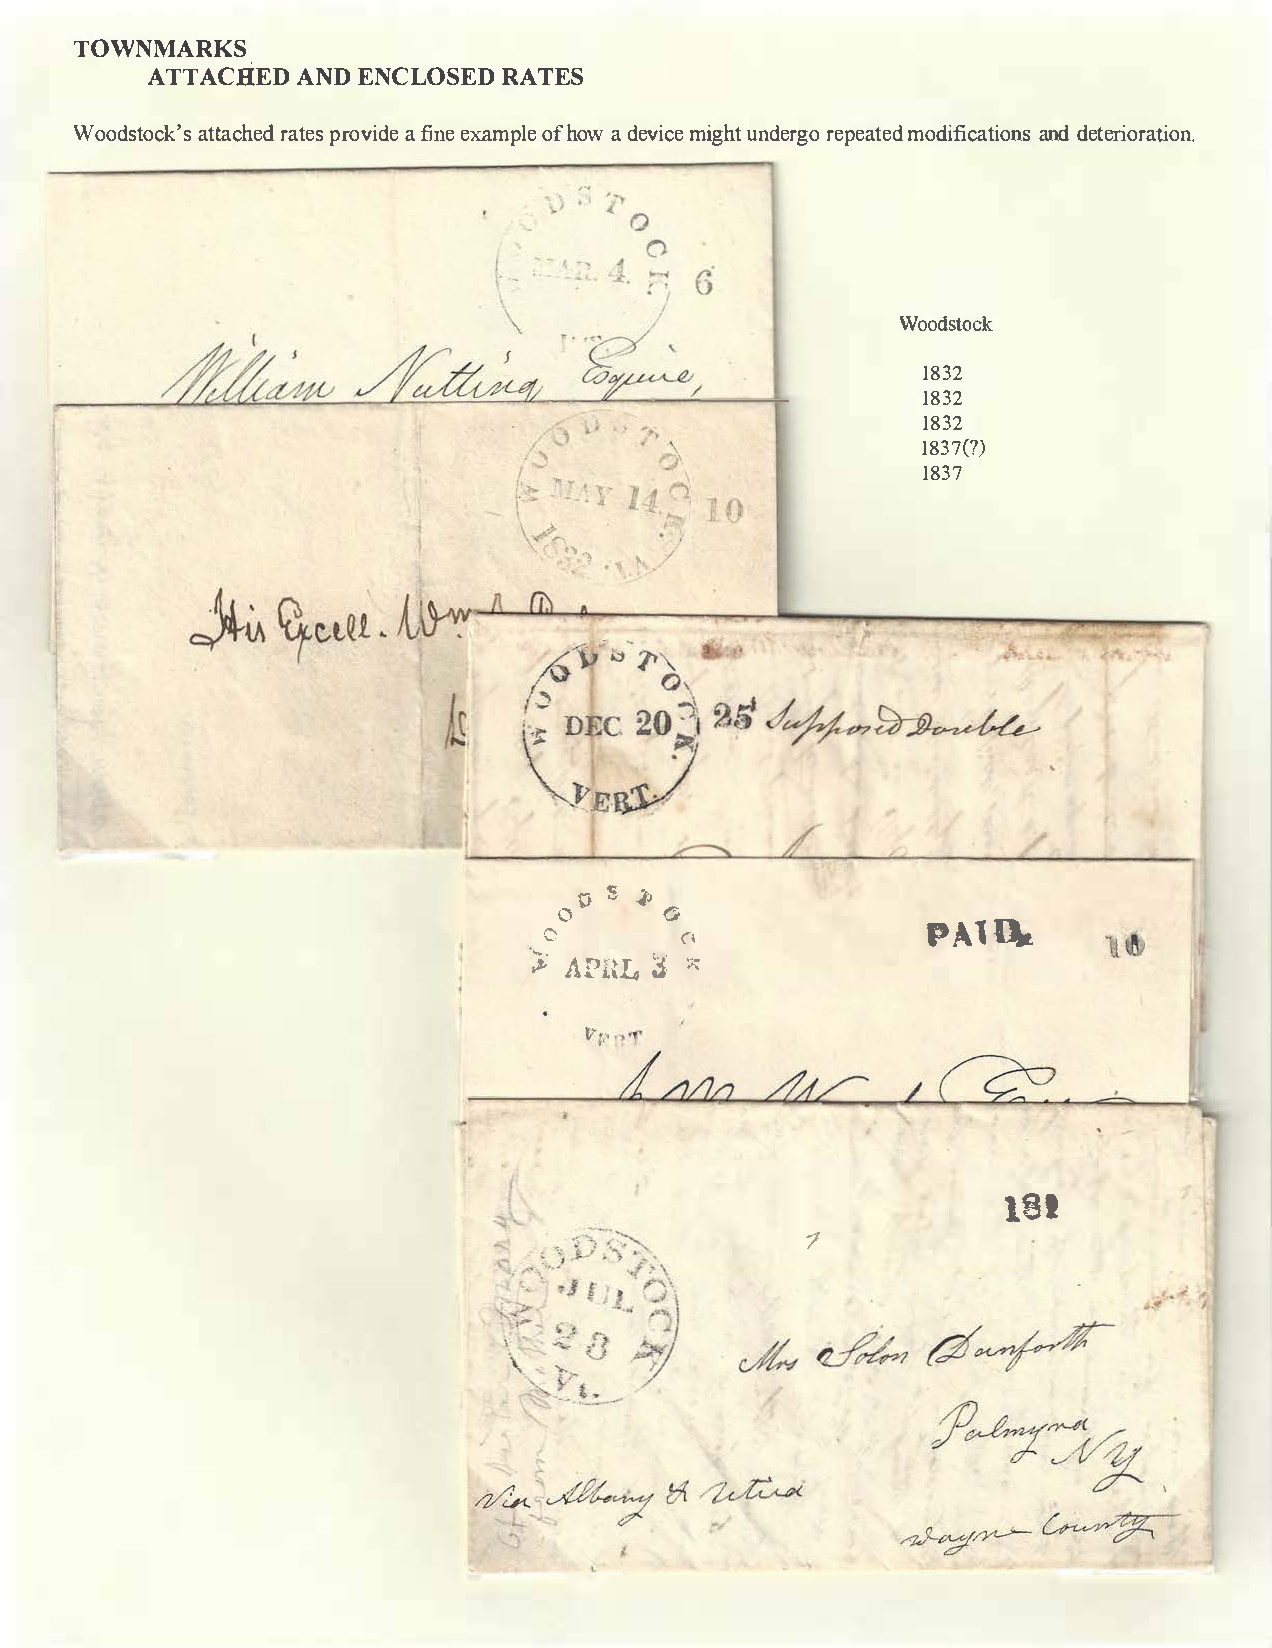 TOWNMARKS
ATTACHED AND ENCLOSED RATES
Woodstock's attached rates provide a fine example of how a device might undergo repeated modifications and deterioration.
WOODSTOCK
MAR. 4. 6
VT.
William Nutting Esquire,
Woodstock
1832
1832
1832
1837(?)
1837
WOODSTOCK.
MAY 14. 10
1832 . VA
His Excell. Wm
WOODSTOCK.
DEC 20 25 Supposed Double
VERT.
WOODSTOCK
APRL 3
VERT
PAID, 10
181
WOODSTOCK
JUL
28
Vt.
Mrs Solon Danforth
Palmyra
NY
Via Albany & Utica
Wayne County